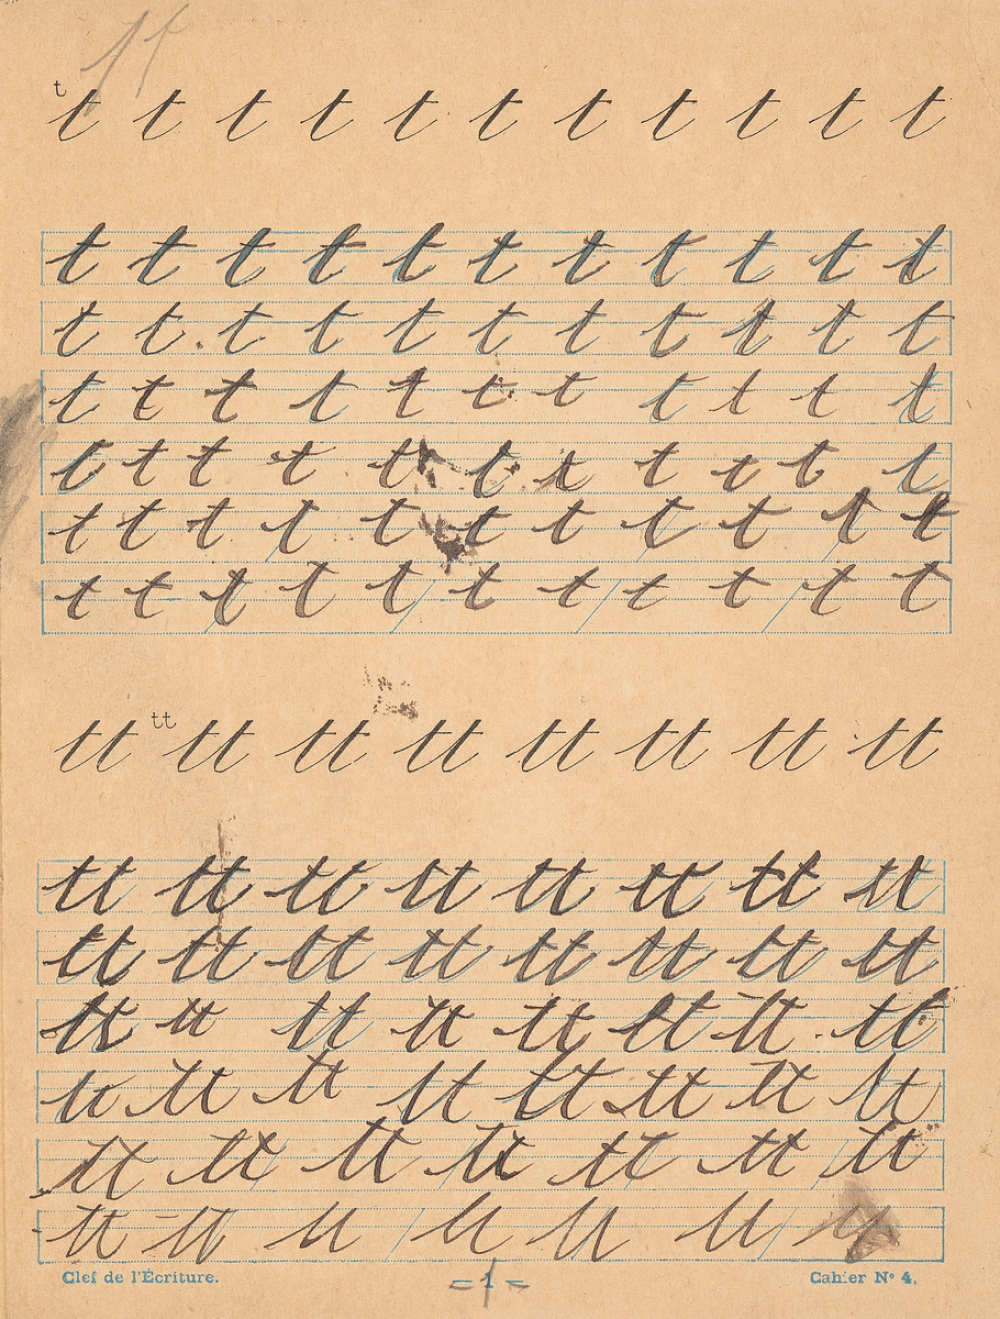 t
t t t t t t t t t t t
t t t t t t t t t t t
t t t t t t t t t t t
t t t t t t t t t t t
t t t t t t t t t t t
t t t t t t t t t t t
t t t t t t t t t t t
tt
tt tt tt tt tt tt tt tt
tt tt tt tt tt tt tt tt
tt tt tt tt tt tt tt tt
tt tt tt tt tt tt tt tt
tt tt tt tt tt tt tt tt
tt tt tt tt tt tt tt
tt tt tt tt tt tt
Clef de l'Écriture. – 1 – Cahier N° 4.